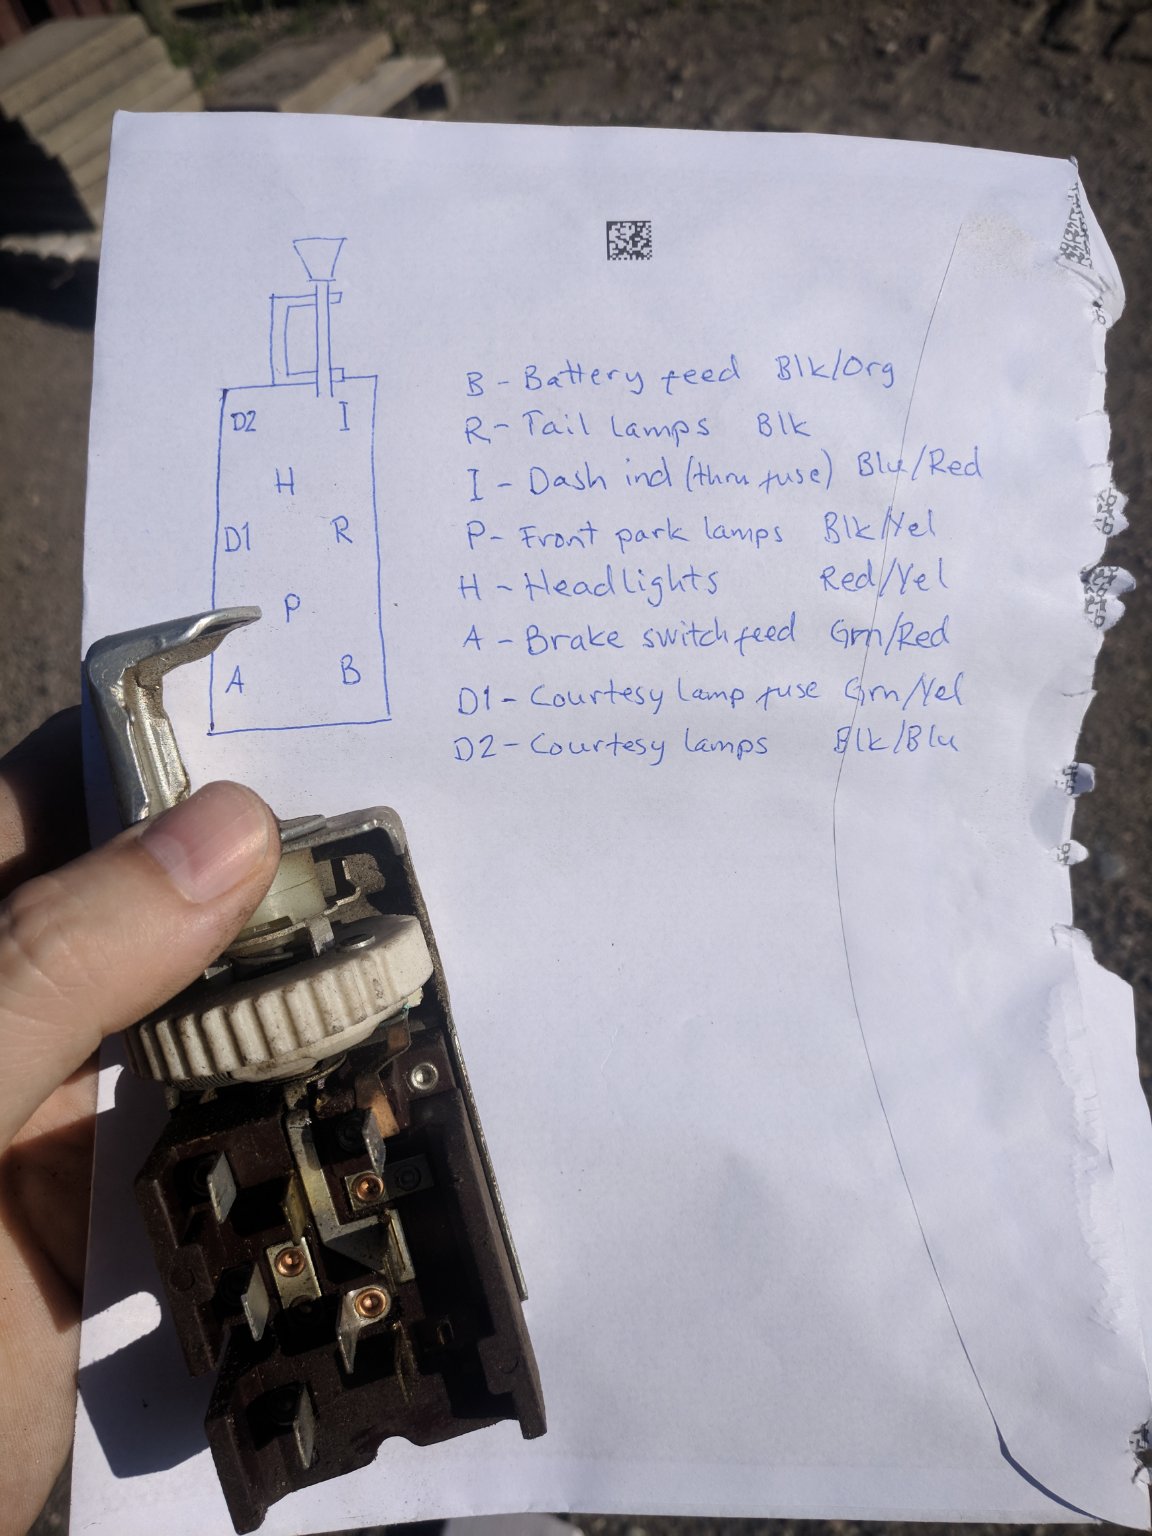 D2 I
H
D1 R
P
A B
B - Battery feed Blk/Org
R - Tail lamps Blk
I - Dash ind (thru fuse) Blu/Red
P - Front park lamps Blk/Yel
H - Headlights Red/Yel
A - Brake switch feed Grn/Red
D1 - Courtesy lamp fuse Grn/Yel
D2 - Courtesy lamps Blk/Blu